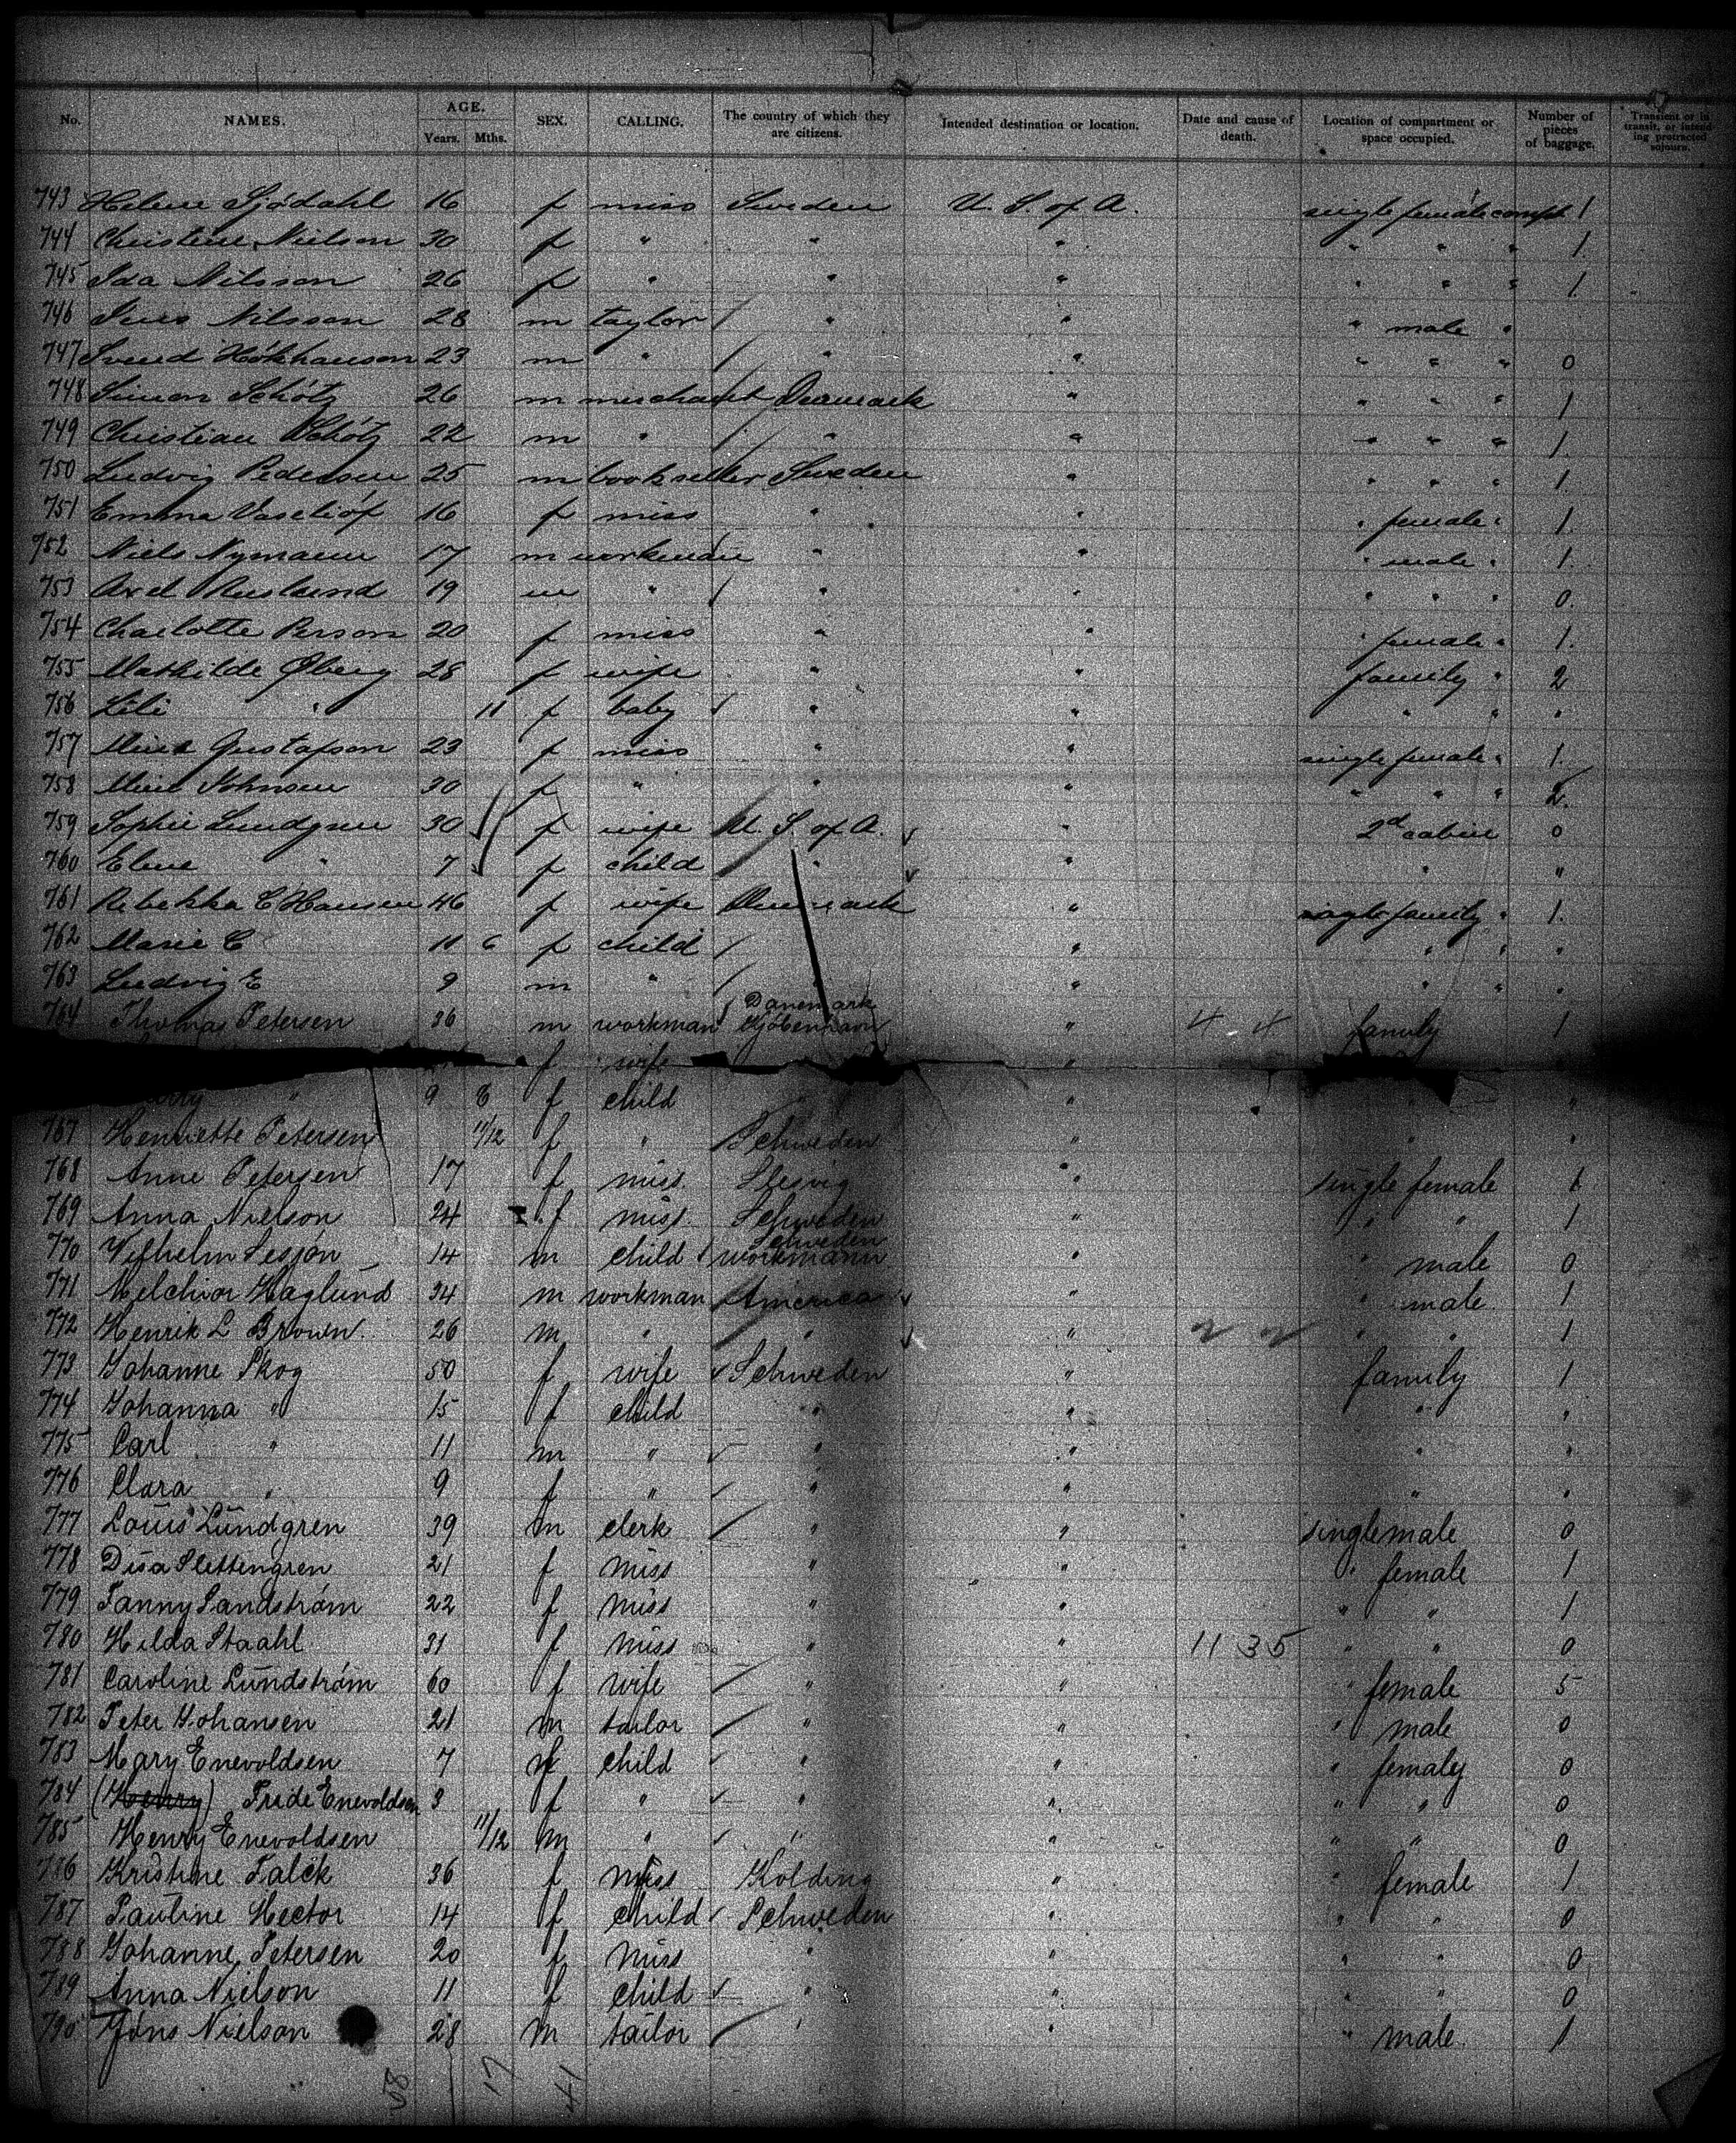 No. NAMES. AGE. Years. Mths. SEX. CALLING. The country of which they are citizens. Intended destination or location. Date and cause of death. Location of compartment or space occupied. Number of pieces of baggage. Transient or in transit, or intending protracted sojourn.
743 Helene Sjödahl 16 f miss Sweden U. S. of A. single female compt 1
744 Christine Nielson 30 f " " " " " " 1.
745 Ida Nilsson 26 f " " " " " " 1.
746 Nilsson 28 m taylor " " " male "
747 Svend 23 m " " " " " " 0
748 Simon Schötz 26 m merchant Denmark " " " " 1
749 Christian Schötz 22 m " " " " " " 1.
750 Ludvig Pedersen 25 m bookseller Sweden " " " " 1.
751 Emma 16 f miss " " " female " 1.
752 Niels Nymann 17 m workman " " " male " 1.
753 Axel 19 m " " " " " " 0.
754 Charlotte Person 20 f miss " " " female " 1.
755 Mathilde Øberg 28 f wife " " family " 2
756 Lili " 11 f baby " " " " "
757 Gustafson 23 f miss " " single female " 1.
758 Johnsen 30 f " " " " " " 2.
759 Sophie Lundgren 30 f wife U. S. of A. " 2d cabin 0
760 Eline " 7 f child " " " "
761 Rebekka C Hansen 46 f wife Denmark " family " 1.
762 Marie C 11 6 f child " " " "
763 Ludvig E 9 m " " " " "
764 Thomas Petersen 36 m workman Danemark Kjöbenhavn " 4 4 family 1
f wife "
" 9 8 f child " "
767 Henriette Petersen 11/12 f " Schweden " " "
768 Anne Petersen 17 f miss. Slesvig " single female 1
769 Anna Nielson 24 f miss. Schweden " " " 1
770 Vilhelm Sesjón 14 m child Schweden workmann " " male 0
771 Melchior Haglund 34 m workman America " " male 1
772 Henrik L Brown. 26 m " " " " " 1
773 Johanne Skog 50 f wife Schweden " family 1
774 Johanna " 15 f child " " " "
775 Carl " 11 m " " " " "
776 Clara " 9 f " " " " "
777 Louis Lundgren 39 m clerk " " single male 0
778 Disa Slettengren 21 f miss " " " female 1
779 Fanny Sandström 22 f miss " " " " 1
780 Hilda Staahl 31 f miss " " 11 35 " " 0
781 Caroline Lundström 60 f wife " " " female 5
782 Peter Johansen 21 m tailor " " " male 0
783 Mary Enevoldsen 7 f child " " " femaly 0
784 (Henry) Fride Enevoldsen 3 f " " " " " 0
785 Henry Enevoldsen 11/12 m " " " " " 0
786 Kristine Falck 36 f miss Kolding " " female 1
787 Pauline Hector 14 f child Schweden " " " 0
788 Johanne Petersen 20 f miss " " " " 0
789 Anna Nielson 11 f child " " " " 0
790 Jöns Nielson 28 m tailor " " " male 1
58 17 41